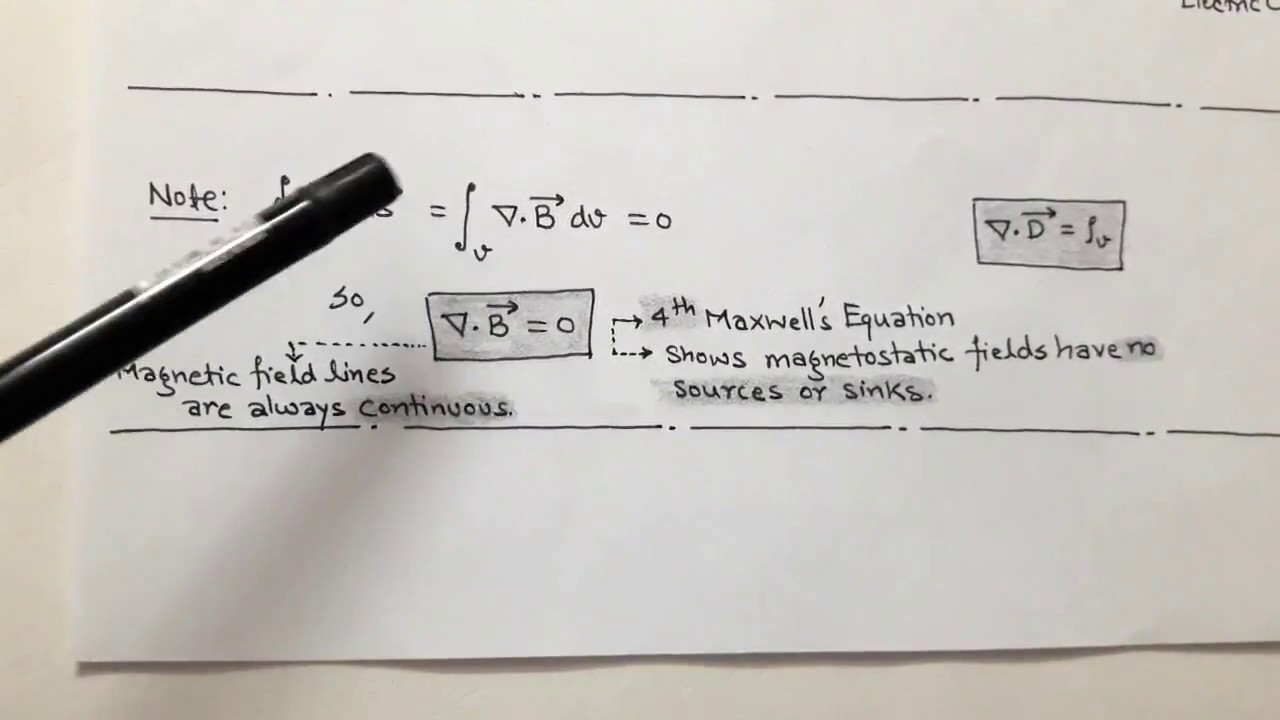 Note: = ∫v ∇·B⃗ dv = 0
∇·D⃗ = ρv
So, ∇·B⃗ = 0
→ 4th Maxwell's Equation
→ Shows magnetostatic fields have no
sources or sinks.
Magnetic field lines
are always continuous.